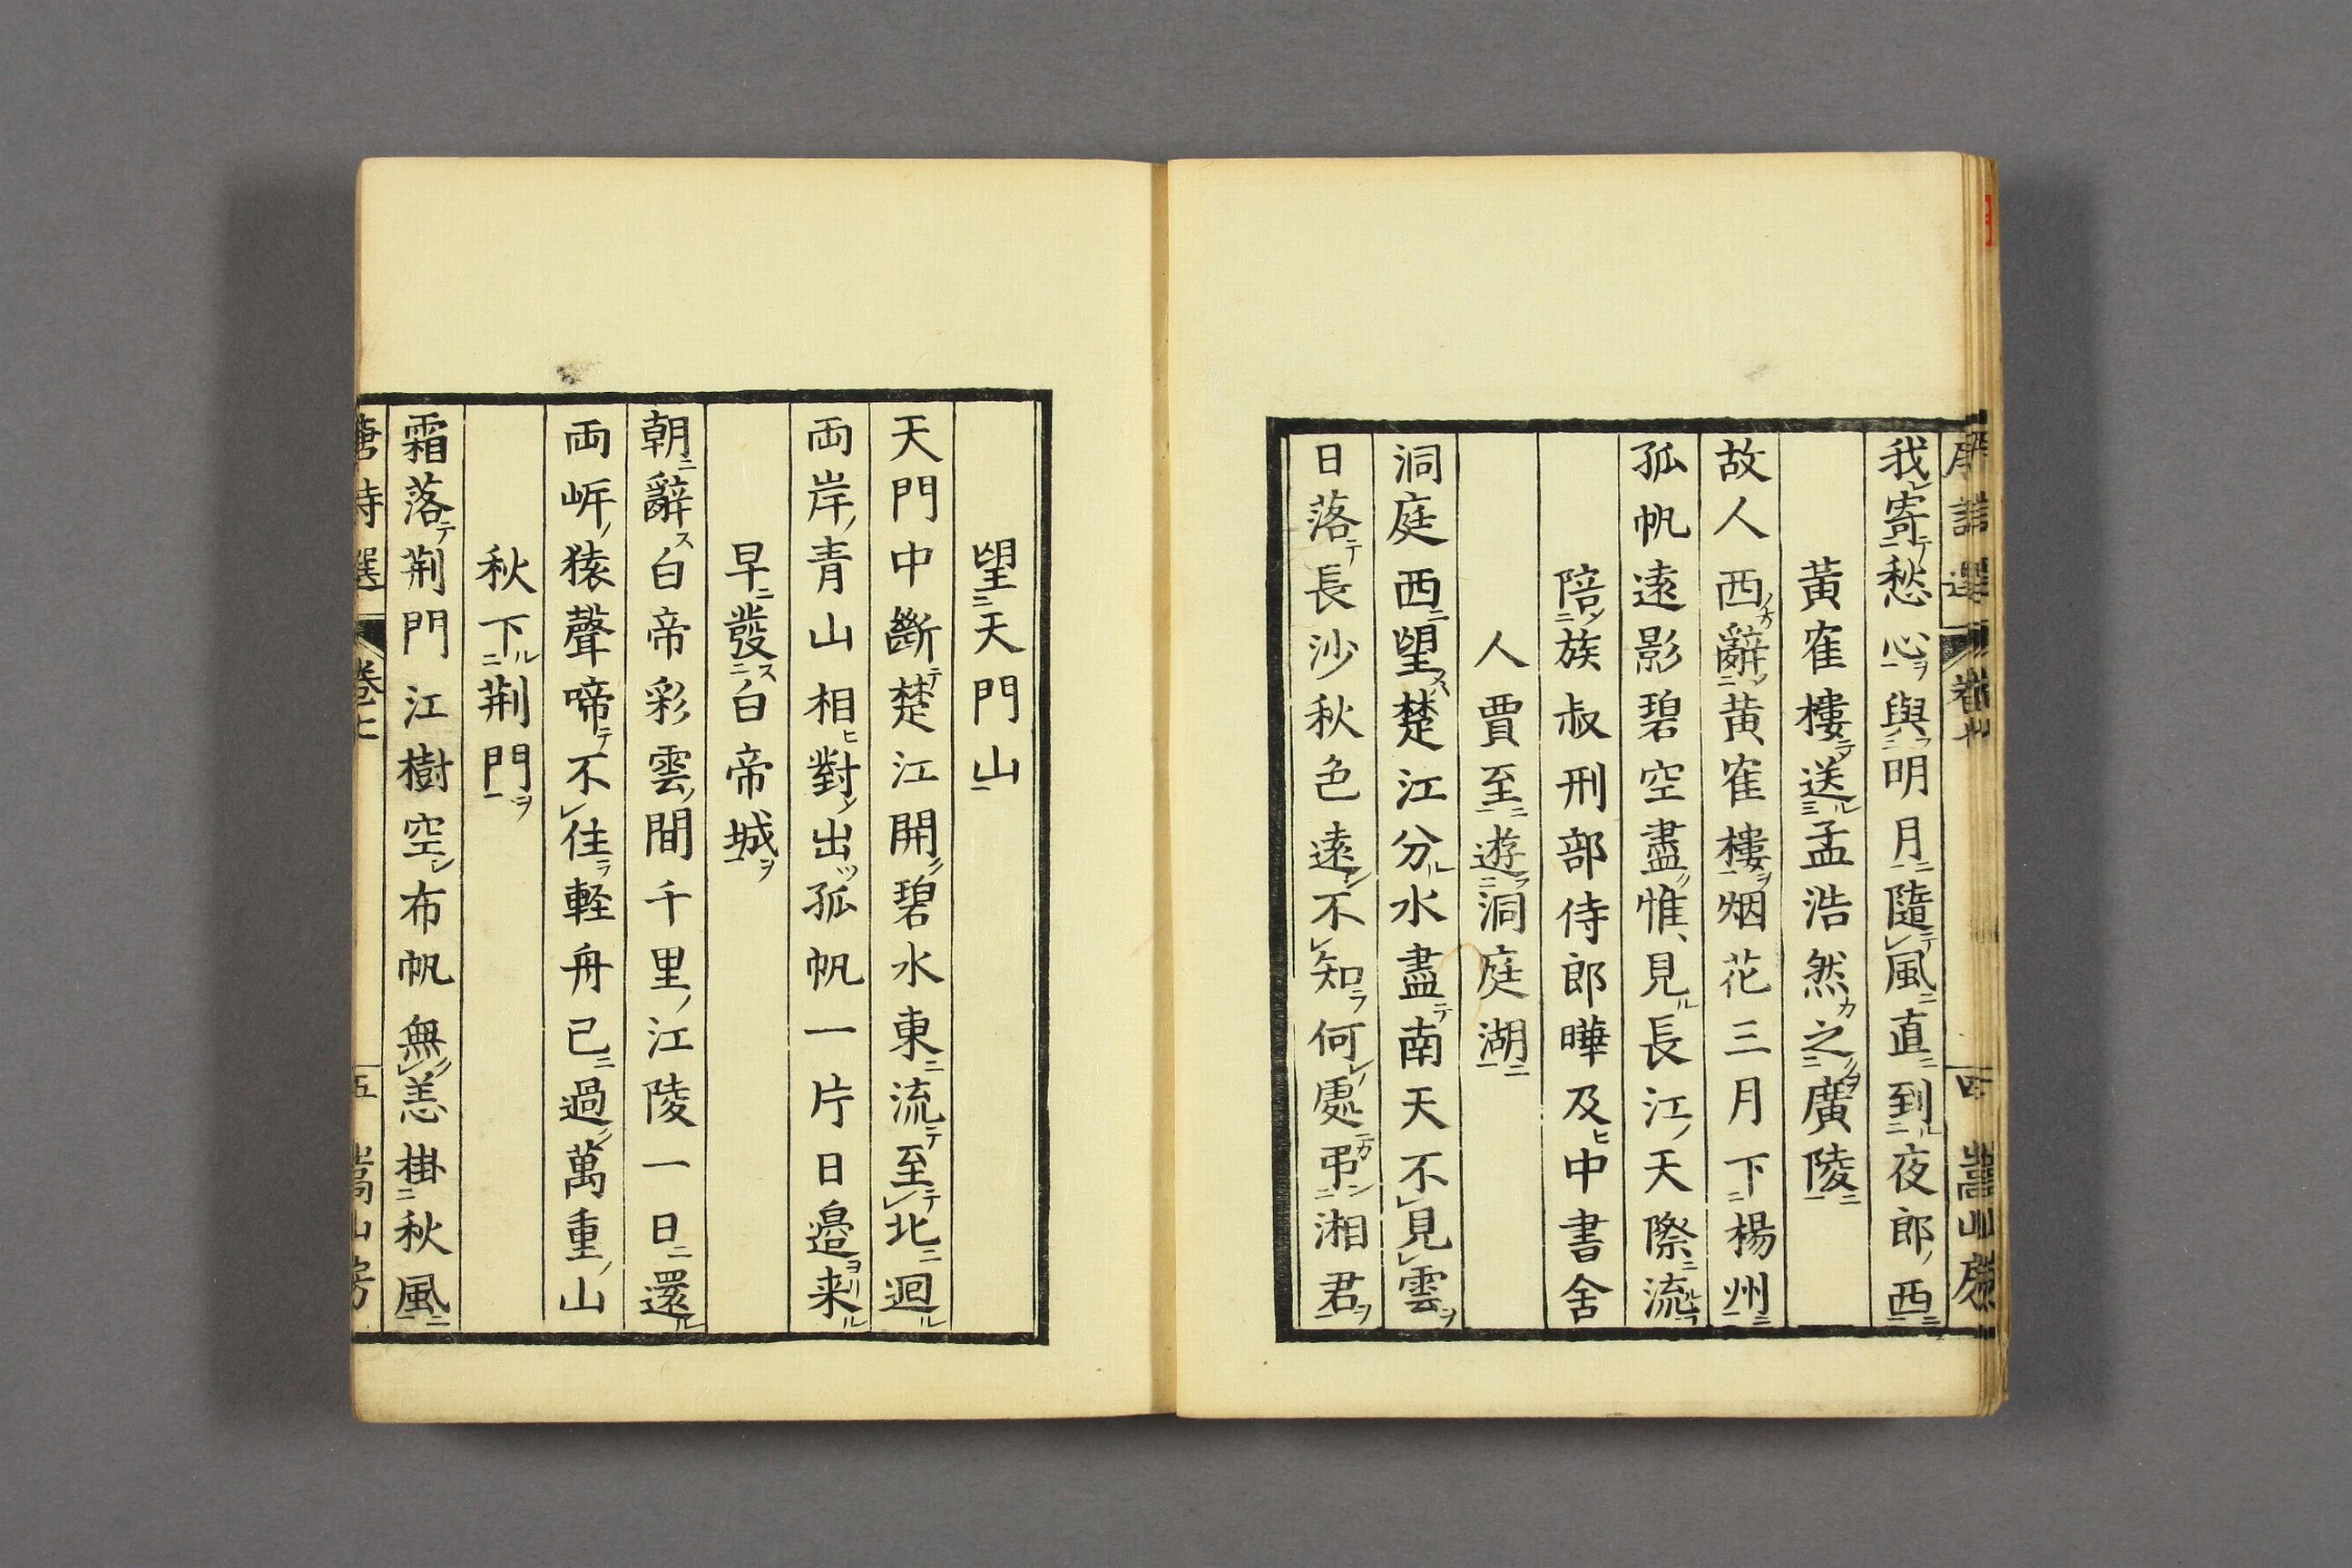 我寄愁心與明月隨風直到夜郎西
黃隺樓送孟浩然之廣陵
故人西辭黄隺樓烟花三月下楊州
孤帆遠影碧空盡惟見長江天際流
陪族叔刑部侍郎曄及中書舍
人賈至遊洞庭湖
洞庭西望楚江分水盡南天不見雲
日落長沙秋色遠不知何處弔湘君
望天門山
天門中斷楚江開碧水東流至北迴
兩岸青山相對出孤帆一片日邉来
早發白帝城
朝辭白帝彩雲間千里江陵一日還
兩岍猿聲啼不住軽舟已過萬重山
秋下荆門
霜落荆門江樹空布帆無恙掛秋風
唐詩選 卷七 五 嵩山房